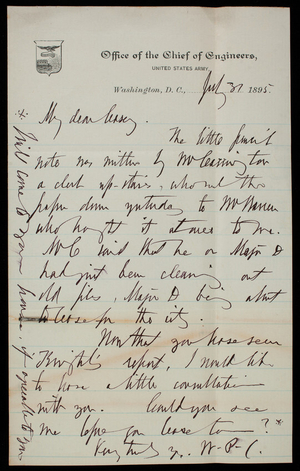 Office of the Chief of Engineers,
UNITED STATES ARMY,
Washington, D.C., July 31 1895.
My dear Casey.
The little pencil
note was written by
a clerk up-stairs, who sent the
paper down yesterday to Mr Warren
who brought it at once to me.
Mr C said that he or Major D
had just been cleaning out
old files, Major D being about
to leave for the city.
Now that you have seen
Knight's report, I would like
to have a little consultation
with you. Could you see
me before you leave town?*
Very truly yrs. W-P-C.
* Will come to your house, if agreeable to you